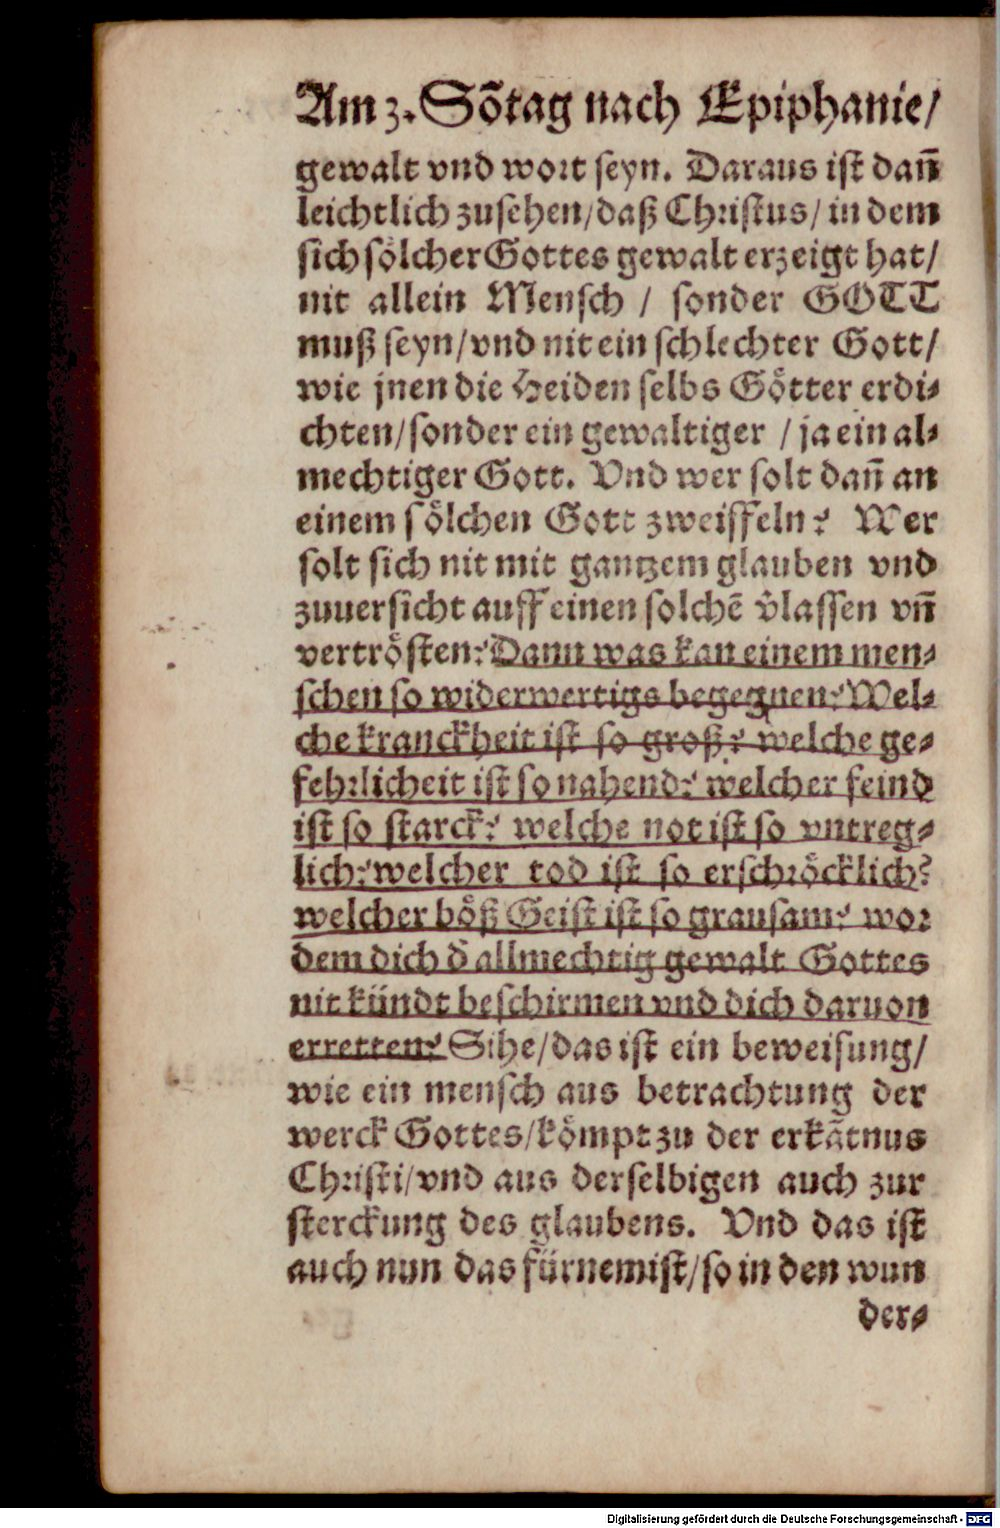 Am 3. Sõtag nach Epiphanie/
gewalt vnd wort seyn. Daraus ist dañ
leichtlich zusehen/daß Christus/ in dem
sich sölcher Gottes gewalt erzeigt hat/
nit allein Mensch / sonder GOTT
muß seyn/vnd nit ein schlechter Gott/
wie jnen die Heiden selbs Götter erdi⸗
chten/sonder ein gewaltiger / ja ein al⸗
mechtiger Gott. Vnd wer solt dañ an
einem sölchen Gott zweiffeln? Wer
solt sich nit mit gantzem glauben vnd
zuuersicht auff einen solchẽ v̂lassen vñ
vertrösten? Dann was kan einem men⸗
schen so widerwertigs begegnen? Wel⸗
che kranckheit ist so groß? welche ge⸗
fehrlicheit ist so nahend? welcher feind
ist so starck? welche not ist so vntreg⸗
lich? welcher tod ist so erschröcklich?
welcher böß Geist ist so grausam? vor
dem dich d̕ allmechtig gewalt Gottes
nit kündt beschirmen vnd dich daruon
erretten? Sihe/das ist ein beweisung/
wie ein mensch aus betrachtung der
werck Gottes/kömpt zu der erkãtnus
Christi/vnd aus derselbigen auch zur
sterckung des glaubens. Vnd das ist
auch nun das fürnemist/so in den wun
der⸗
Digitalisierung gefördert durch die Deutsche Forschungsgemeinschaft - DFG